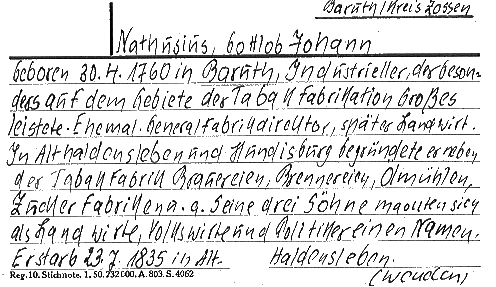 Baruth/Kreis Zossen
Nathusius, Gottlob Johann
geboren 30.4.1760 in Baruth, Industrieller, der beson-
ders auf dem Gebiete der Tabakfabrikation Großes
leistete. Ehemal. Generalfabrikdirektor, später Landwirt.
In Althaldensleben und Hundisburg begründete er neben
der Tabakfabrik Brauereien, Brennereien, Ölmühlen,
Zuckerfabriken u. a. Seine drei Söhne machten sich
als Landwirte, Volkswirte und Politiker einen Namen.
Er starb 23.7.1835 in Alt-
Haldensleben.
(wenden)
Reg. 10. Stichnote. 1. 50. 232000. A. 803. S. 4062